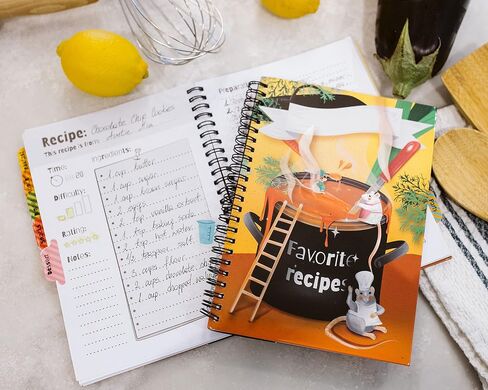 Recipe: Chocolate Chip Cookies
This recipe is from: Auntie
Time:
:20
Difficulty:
Rating:
Notes:
Ingredients:
1 cup butter
1 cup sugar
1 cup brown sugar
2
2 tsp. vanilla extract
1 tsp. baking soda
2 tsp. hot water
1/2 teaspoon salt
3 cups flour
2 cups chocolate
1 cup chopped
Dessert
Favorite
recipes